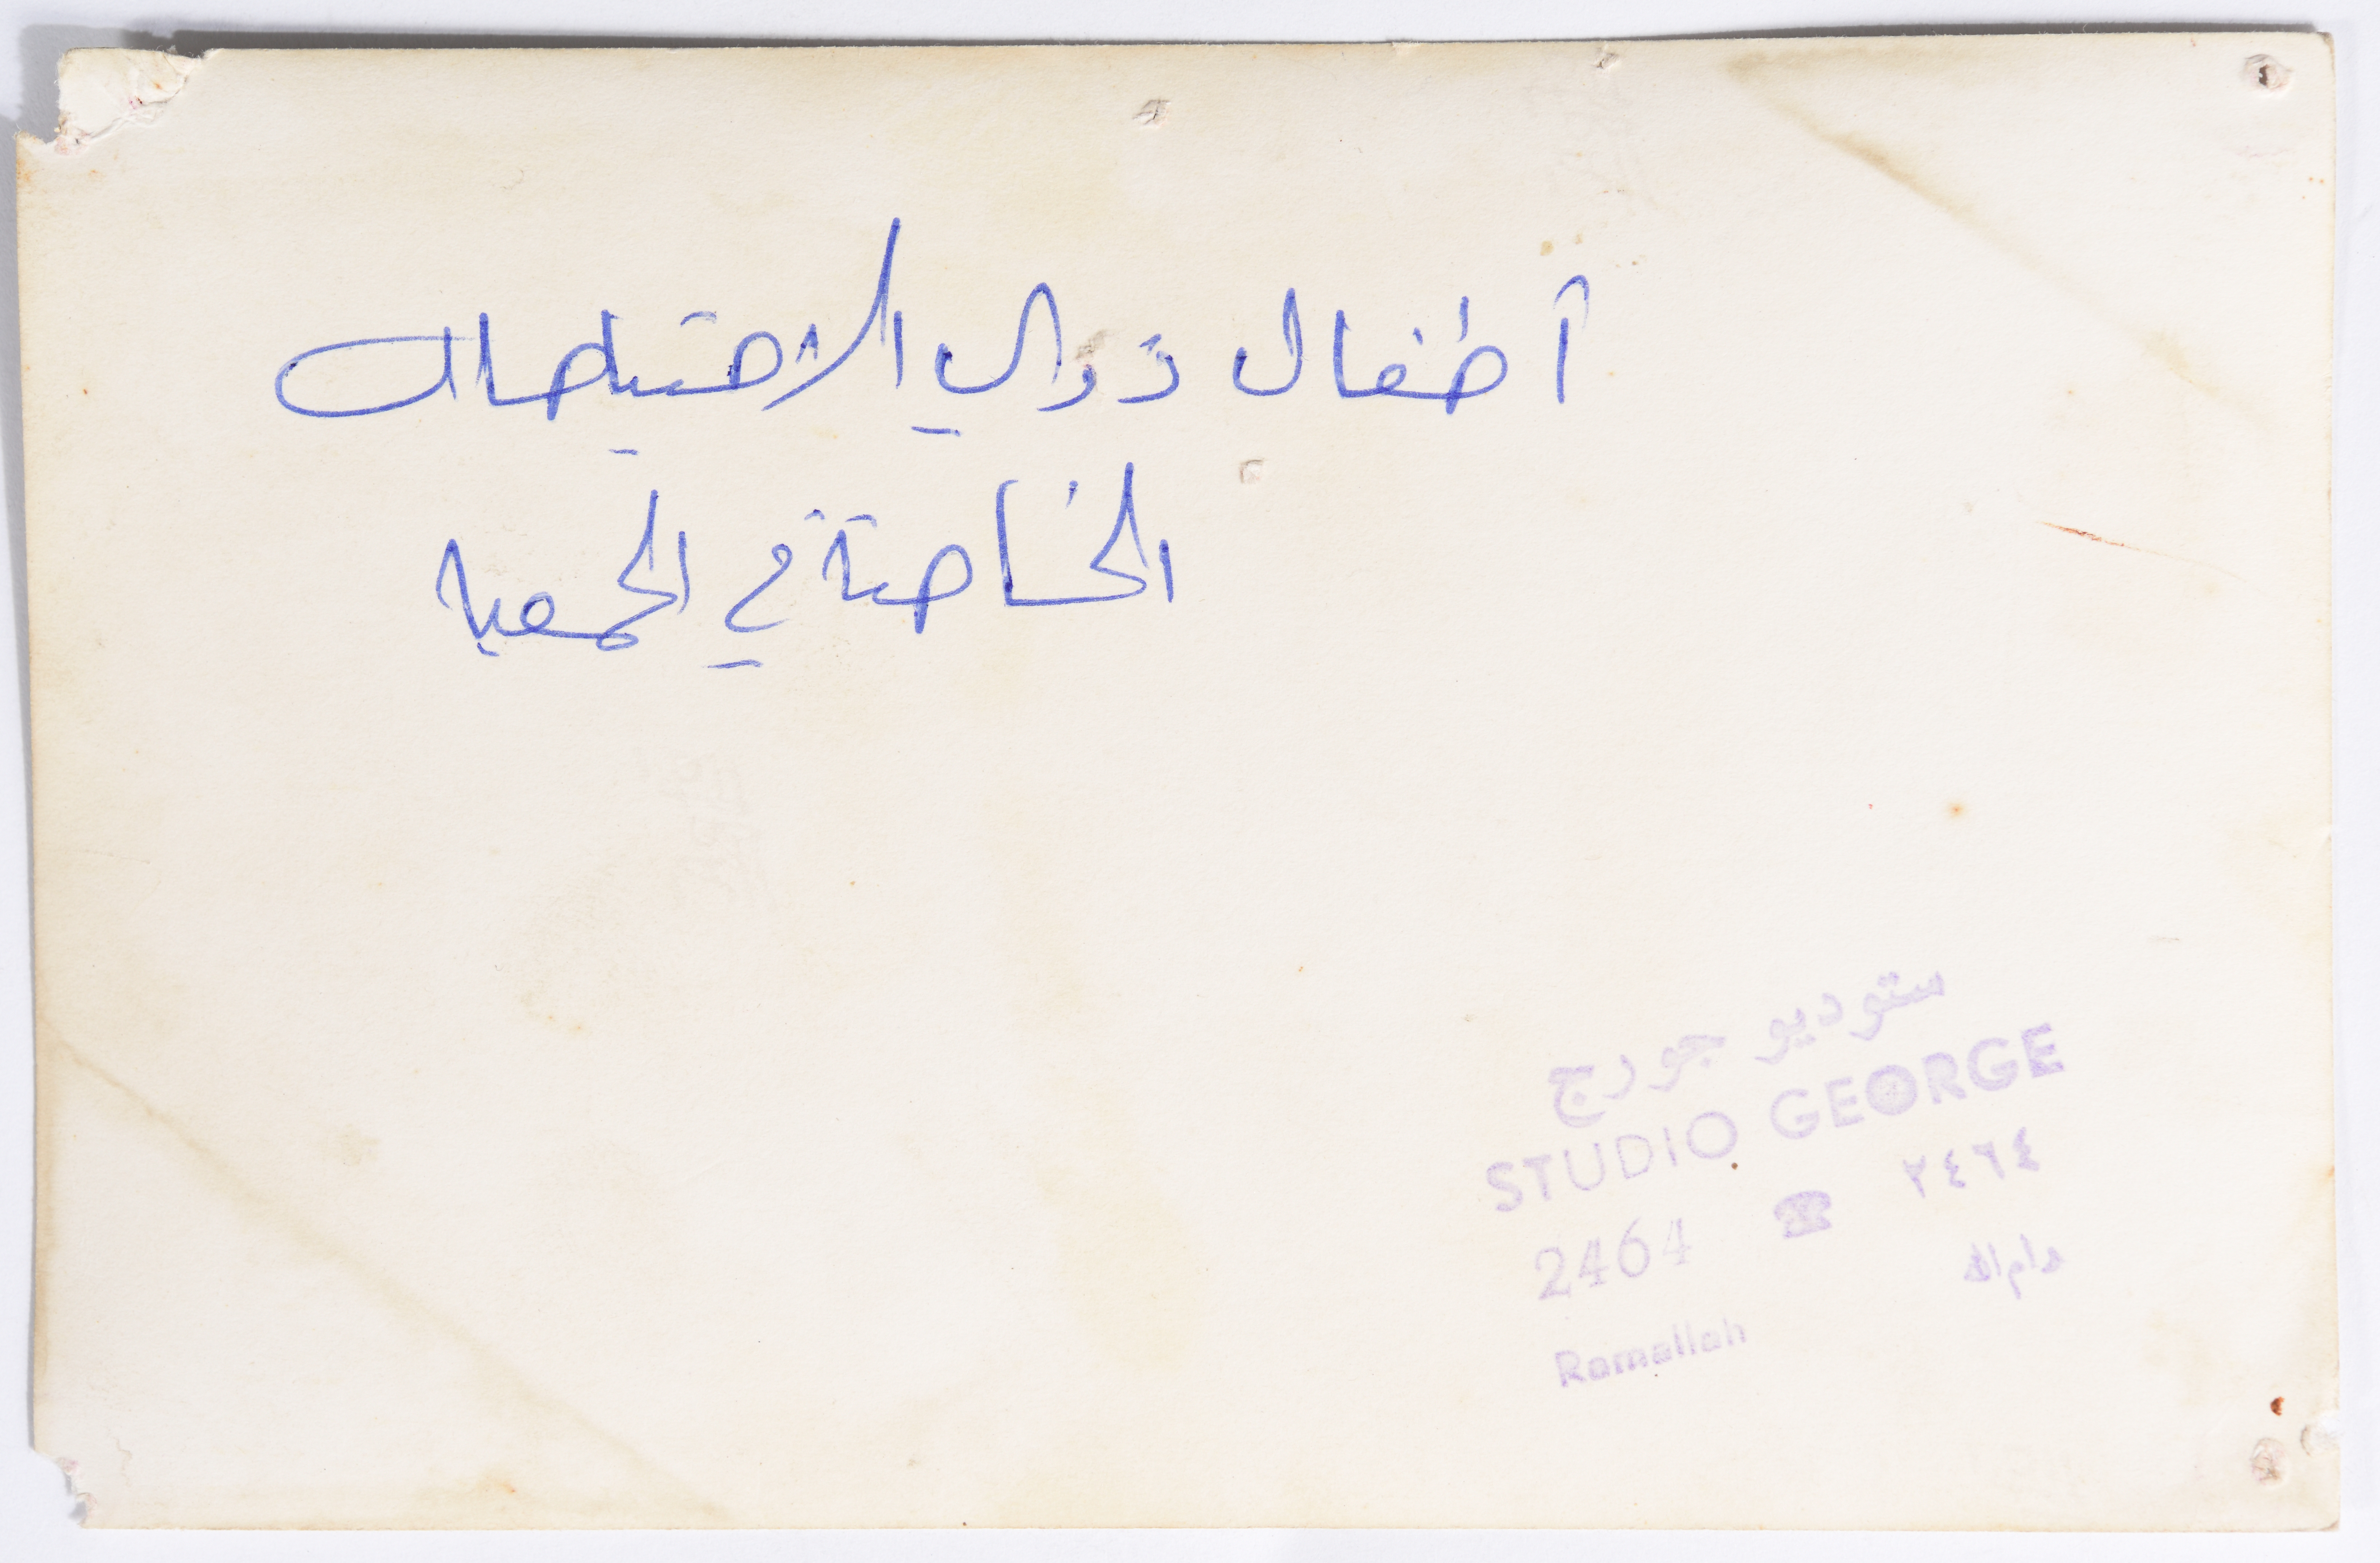 أطفال ذوي الاحتياجات
الخاصة في الجمعيه
ستوديو جورج
STUDIO GEORGE
2464 ☎ ٢٤٦٤
Ramallah رام الله